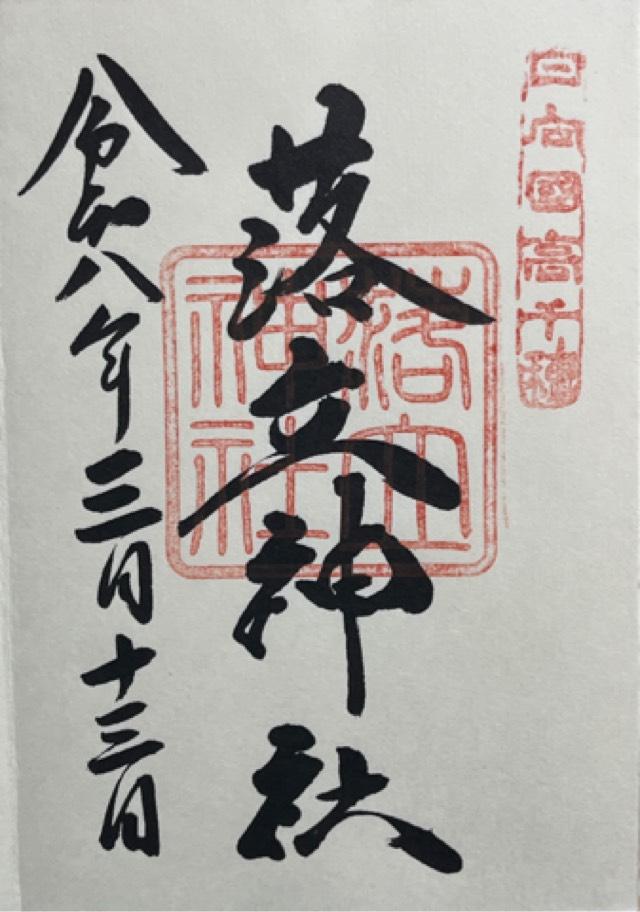 日向國高千穂
落立神社
落立神社
令和八年三月十三日